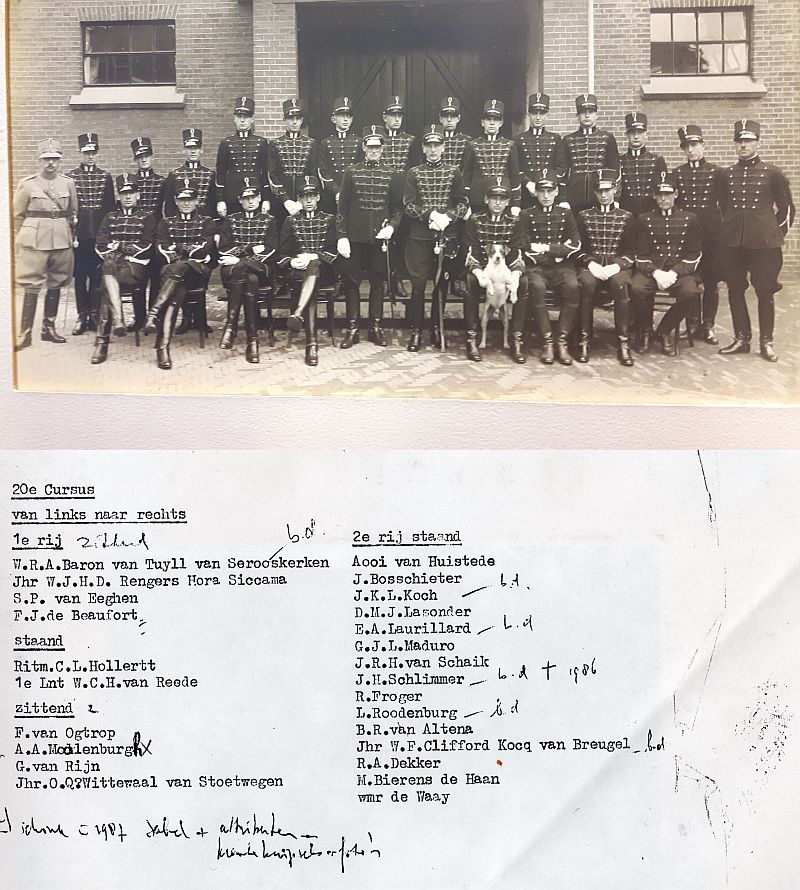 20e Cursus
van links naar rechts
1e rij zittend
b.d.
W.R.A.Baron van Tuyll van Serooskerken
Jhr W.J.H.D. Rengers Hora Siccama
S.P. van Eeghen
F.J.de Beaufort
staand
Ritm.C.L.Hollertt
1e Lnt W.C.H.van Reede
zittend 2
F.van Ogtrop
A.A.Mechlenburg
G.van Rijn
Jhr.O.Q?Wittewaal van Stoetwegen
2e rij staand
Aooi van Huistede
J.Bosschieter
J.K.L.Koch — b.d.
D.M.J.Lasonder
E.A.Laurillard — b.d
G.J.L.Maduro
J.R.H.van Schaik
J.H.Schlimmer — b.d + 1986
R.Froger
L.Roodenburg — b.d
B.R.van Altena
Jhr W.F.Clifford Kocq van Breugel — b.d
R.A.Dekker
M.Bierens de Haan
wmr de Waay
1987 sabel + attributen